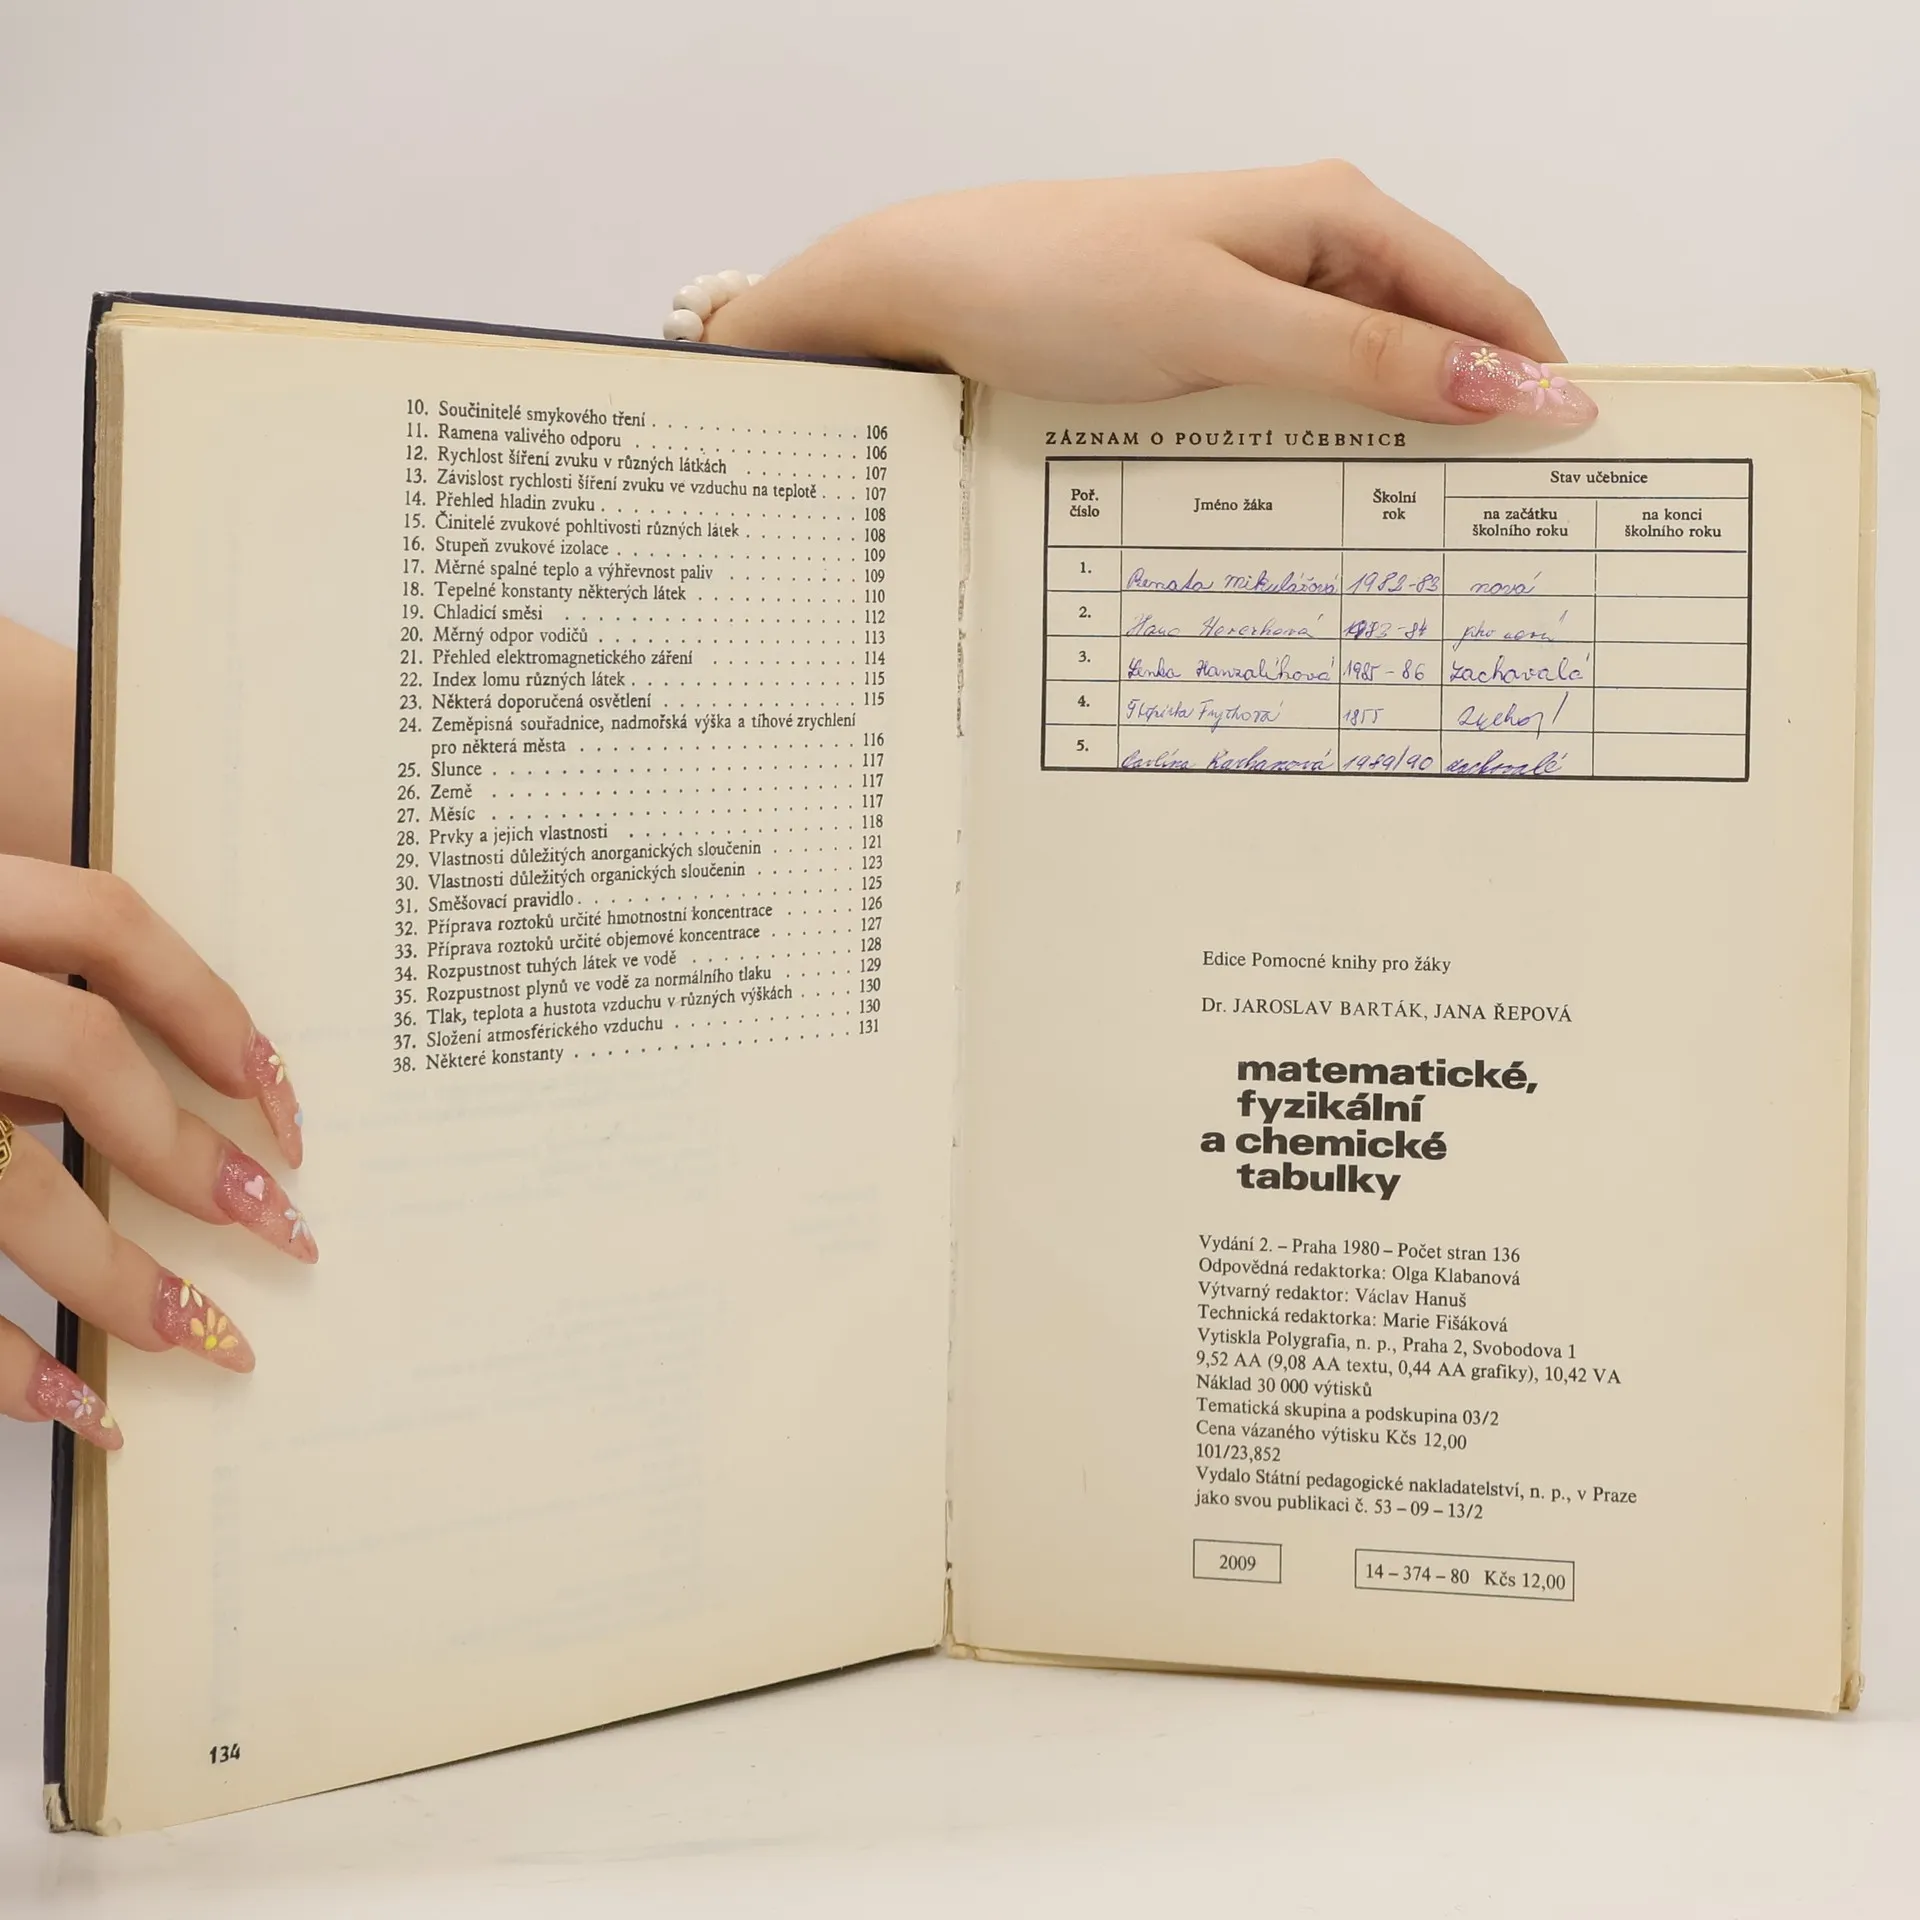 10. Součinitelé smykového tření . . . . . . . . . . . . . . 106
11. Ramena valivého odporu . . . . . . . . . . . . . . . 106
12. Rychlost šíření zvuku v různých látkách . . . . . . . 107
13. Závislost rychlosti šíření zvuku ve vzduchu na teplotě . . . 107
14. Přehled hladin zvuku . . . . . . . . . . . . . . . . . 108
15. Činitelé zvukové pohltivosti různých látek . . . . . . . 108
16. Stupeň zvukové izolace . . . . . . . . . . . . . . . . 109
17. Měrné spalné teplo a výhřevnost paliv . . . . . . . . 109
18. Tepelné konstanty některých látek . . . . . . . . . . 110
19. Chladicí směsi . . . . . . . . . . . . . . . . . . . 112
20. Měrný odpor vodičů . . . . . . . . . . . . . . . . . 113
21. Přehled elektromagnetického záření . . . . . . . . . 114
22. Index lomu různých látek . . . . . . . . . . . . . . . 115
23. Některá doporučená osvětlení . . . . . . . . . . . . 115
24. Zeměpisná souřadnice, nadmořská výška a tíhové zrychlení
pro některá města . . . . . . . . . . . . . . . . . . 116
25. Slunce . . . . . . . . . . . . . . . . . . . . . . . 117
26. Země . . . . . . . . . . . . . . . . . . . . . . . 117
27. Měsíc . . . . . . . . . . . . . . . . . . . . . . . 117
28. Prvky a jejich vlastnosti . . . . . . . . . . . . . . 118
29. Vlastnosti důležitých anorganických sloučenin . . . . . . 121
30. Vlastnosti důležitých organických sloučenin . . . . . . . 123
31. Směšovací pravidlo . . . . . . . . . . . . . . . . . 125
32. Příprava roztoků určité hmotnostní koncentrace . . . . . 126
33. Příprava roztoků určité objemové koncentrace . . . . . . 127
34. Rozpustnost tuhých látek ve vodě . . . . . . . . . . 128
35. Rozpustnost plynů ve vodě za normálního tlaku . . . . . 129
36. Tlak, teplota a hustota vzduchu v různých výškách . . . . 130
37. Složení atmosférického vzduchu . . . . . . . . . . . 130
38. Některé konstanty . . . . . . . . . . . . . . . . . . 131
134
ZÁZNAM O POUŽITÍ UČEBNICE
Poř. číslo Jméno žáka Školní rok Stav učebnice
na začátku školního roku na konci školního roku
1. Renata Mikulášová 1982-83 nová
2. Hana 1983-84
3. Lenka Hanzalíková 1985-86 zachovalá
4.
5. Karbanová 1989/90 zachovalé
Edice Pomocné knihy pro žáky
Dr. JAROSLAV BARTÁK, JANA ŘEPOVÁ
matematické,
fyzikální
a chemické
tabulky
Vydání 2. – Praha 1980 – Počet stran 136
Odpovědná redaktorka: Olga Klabanová
Výtvarný redaktor: Václav Hanuš
Technická redaktorka: Marie Fišáková
Vytiskla Polygrafia, n. p., Praha 2, Svobodova 1
9,52 AA (9,08 AA textu, 0,44 AA grafiky), 10,42 VA
Náklad 30 000 výtisků
Tematická skupina a podskupina 03/2
Cena vázaného výtisku Kčs 12,00
101/23,852
Vydalo Státní pedagogické nakladatelství, n. p., v Praze
jako svou publikaci č. 53 – 09 – 13/2
2009 14 – 374 – 80 Kčs 12,00